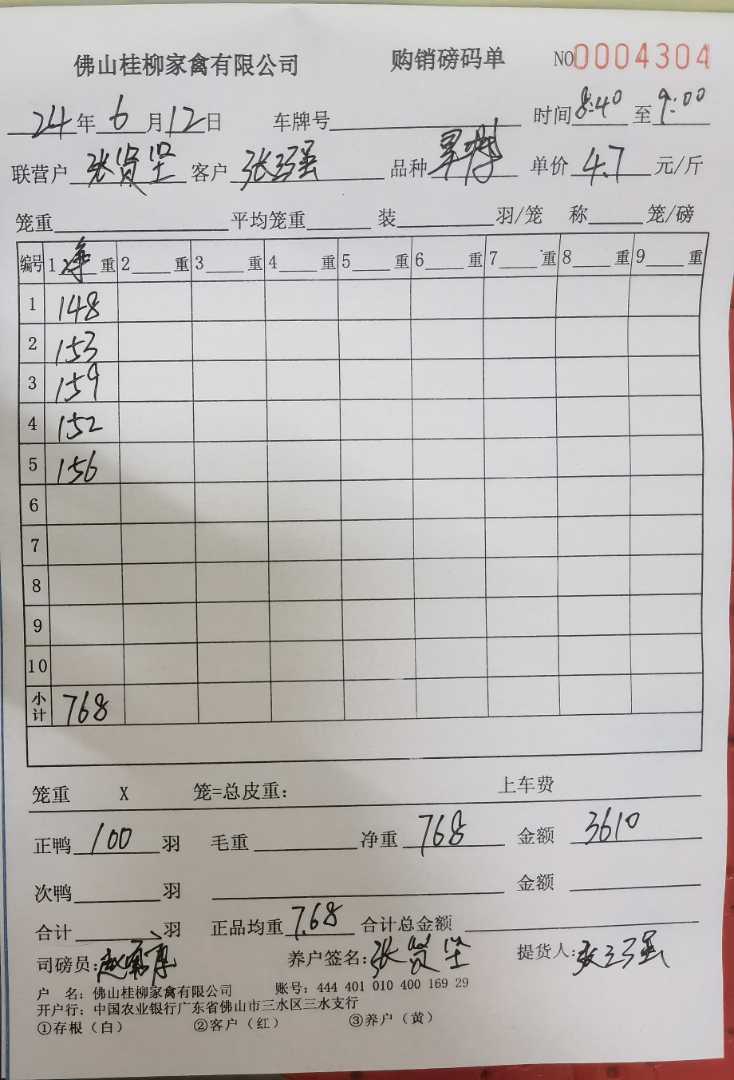 佛山桂柳家禽有限公司 购销磅码单 NO0004304
24年6月12日 车牌号 时间8:40至9:00
联营户张贤坚 客户张 品种 单价4.7元/斤
笼重 平均笼重 装 羽/笼 称 笼/磅
编号 1净重 2 重 3 重 4 重 5 重 6 重 7 重 8 重 9 重
1 148
2 153
3 159
4 152
5 156
6
7
8
9
10
小计 768
笼重 X 笼=总皮重: 上车费
正鸭100羽 毛重 净重768 金额3610
次鸭 羽 金额
合计 羽 正品均重7.68 合计总金额
司磅员: 养户签名:张贤坚 提货人:
户 名: 佛山桂柳家禽有限公司 账号: 444 401 010 400 169 29
开户行: 中国农业银行广东省佛山市三水区三水支行
①存根(白) ②客户(红) ③养户(黄)